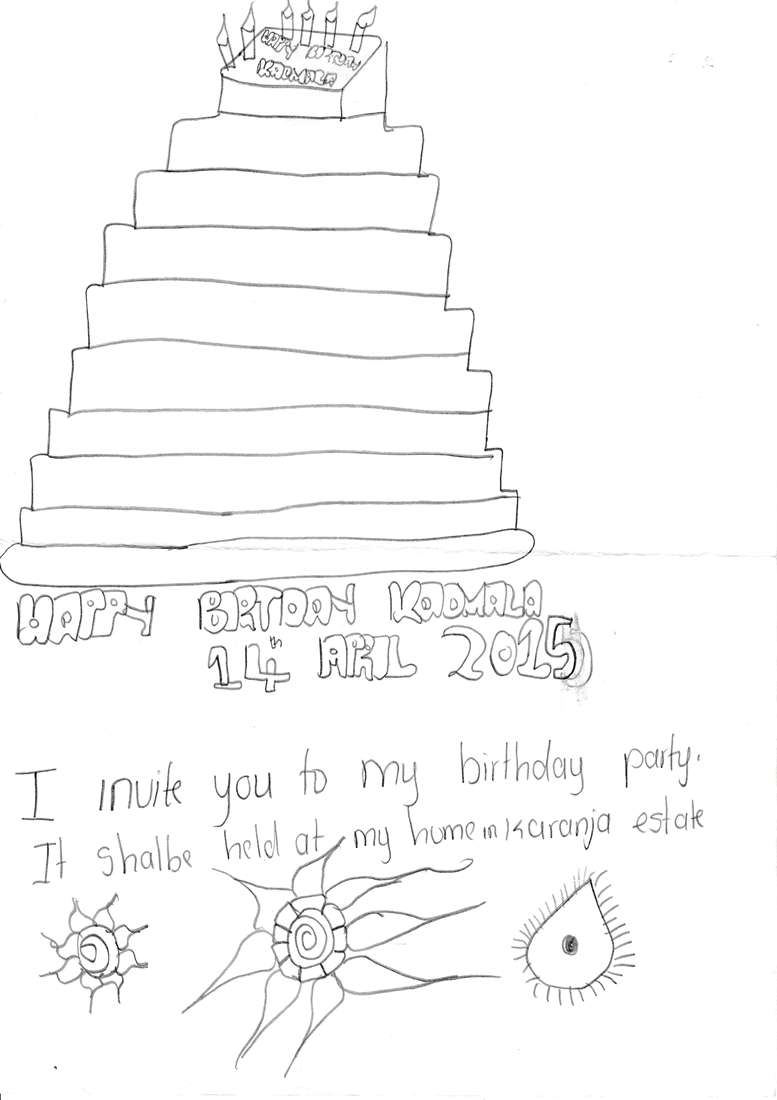 HAPPY BIRTDAY
KADMALA
HAPPY BIRTDAY KADMALA
14th APRIL 2015
I invite you to my birthday party.
It shalbe held at my home in Karanja estate